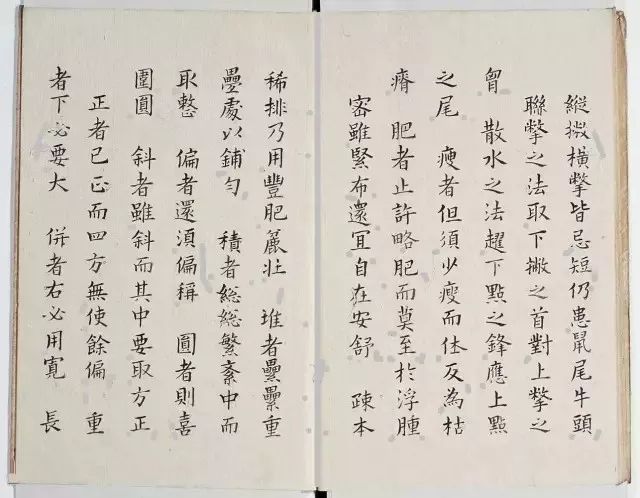 縱撇橫撆皆忌短仍患鼠尾牛頭
聯撆之法取下撇之首對上撆之
胷 散水之法趯下點之鋒應上點
之尾 瘦者但須少瘦而体反為枯
瘠 肥者止許略肥而莫至於浮腫
密雖緊布還宜自在安舒 踈本
稀排乃用豐肥麄壯 堆者壘壘重
疊處以鋪勻 積者総総繁紊中而
取整 偏者還須偏稱 圓者則喜
圍圓 斜者雖斜而其中要取方正
正者已正而四方無使餘偏 重
者下必要大 併者右必用寬 長